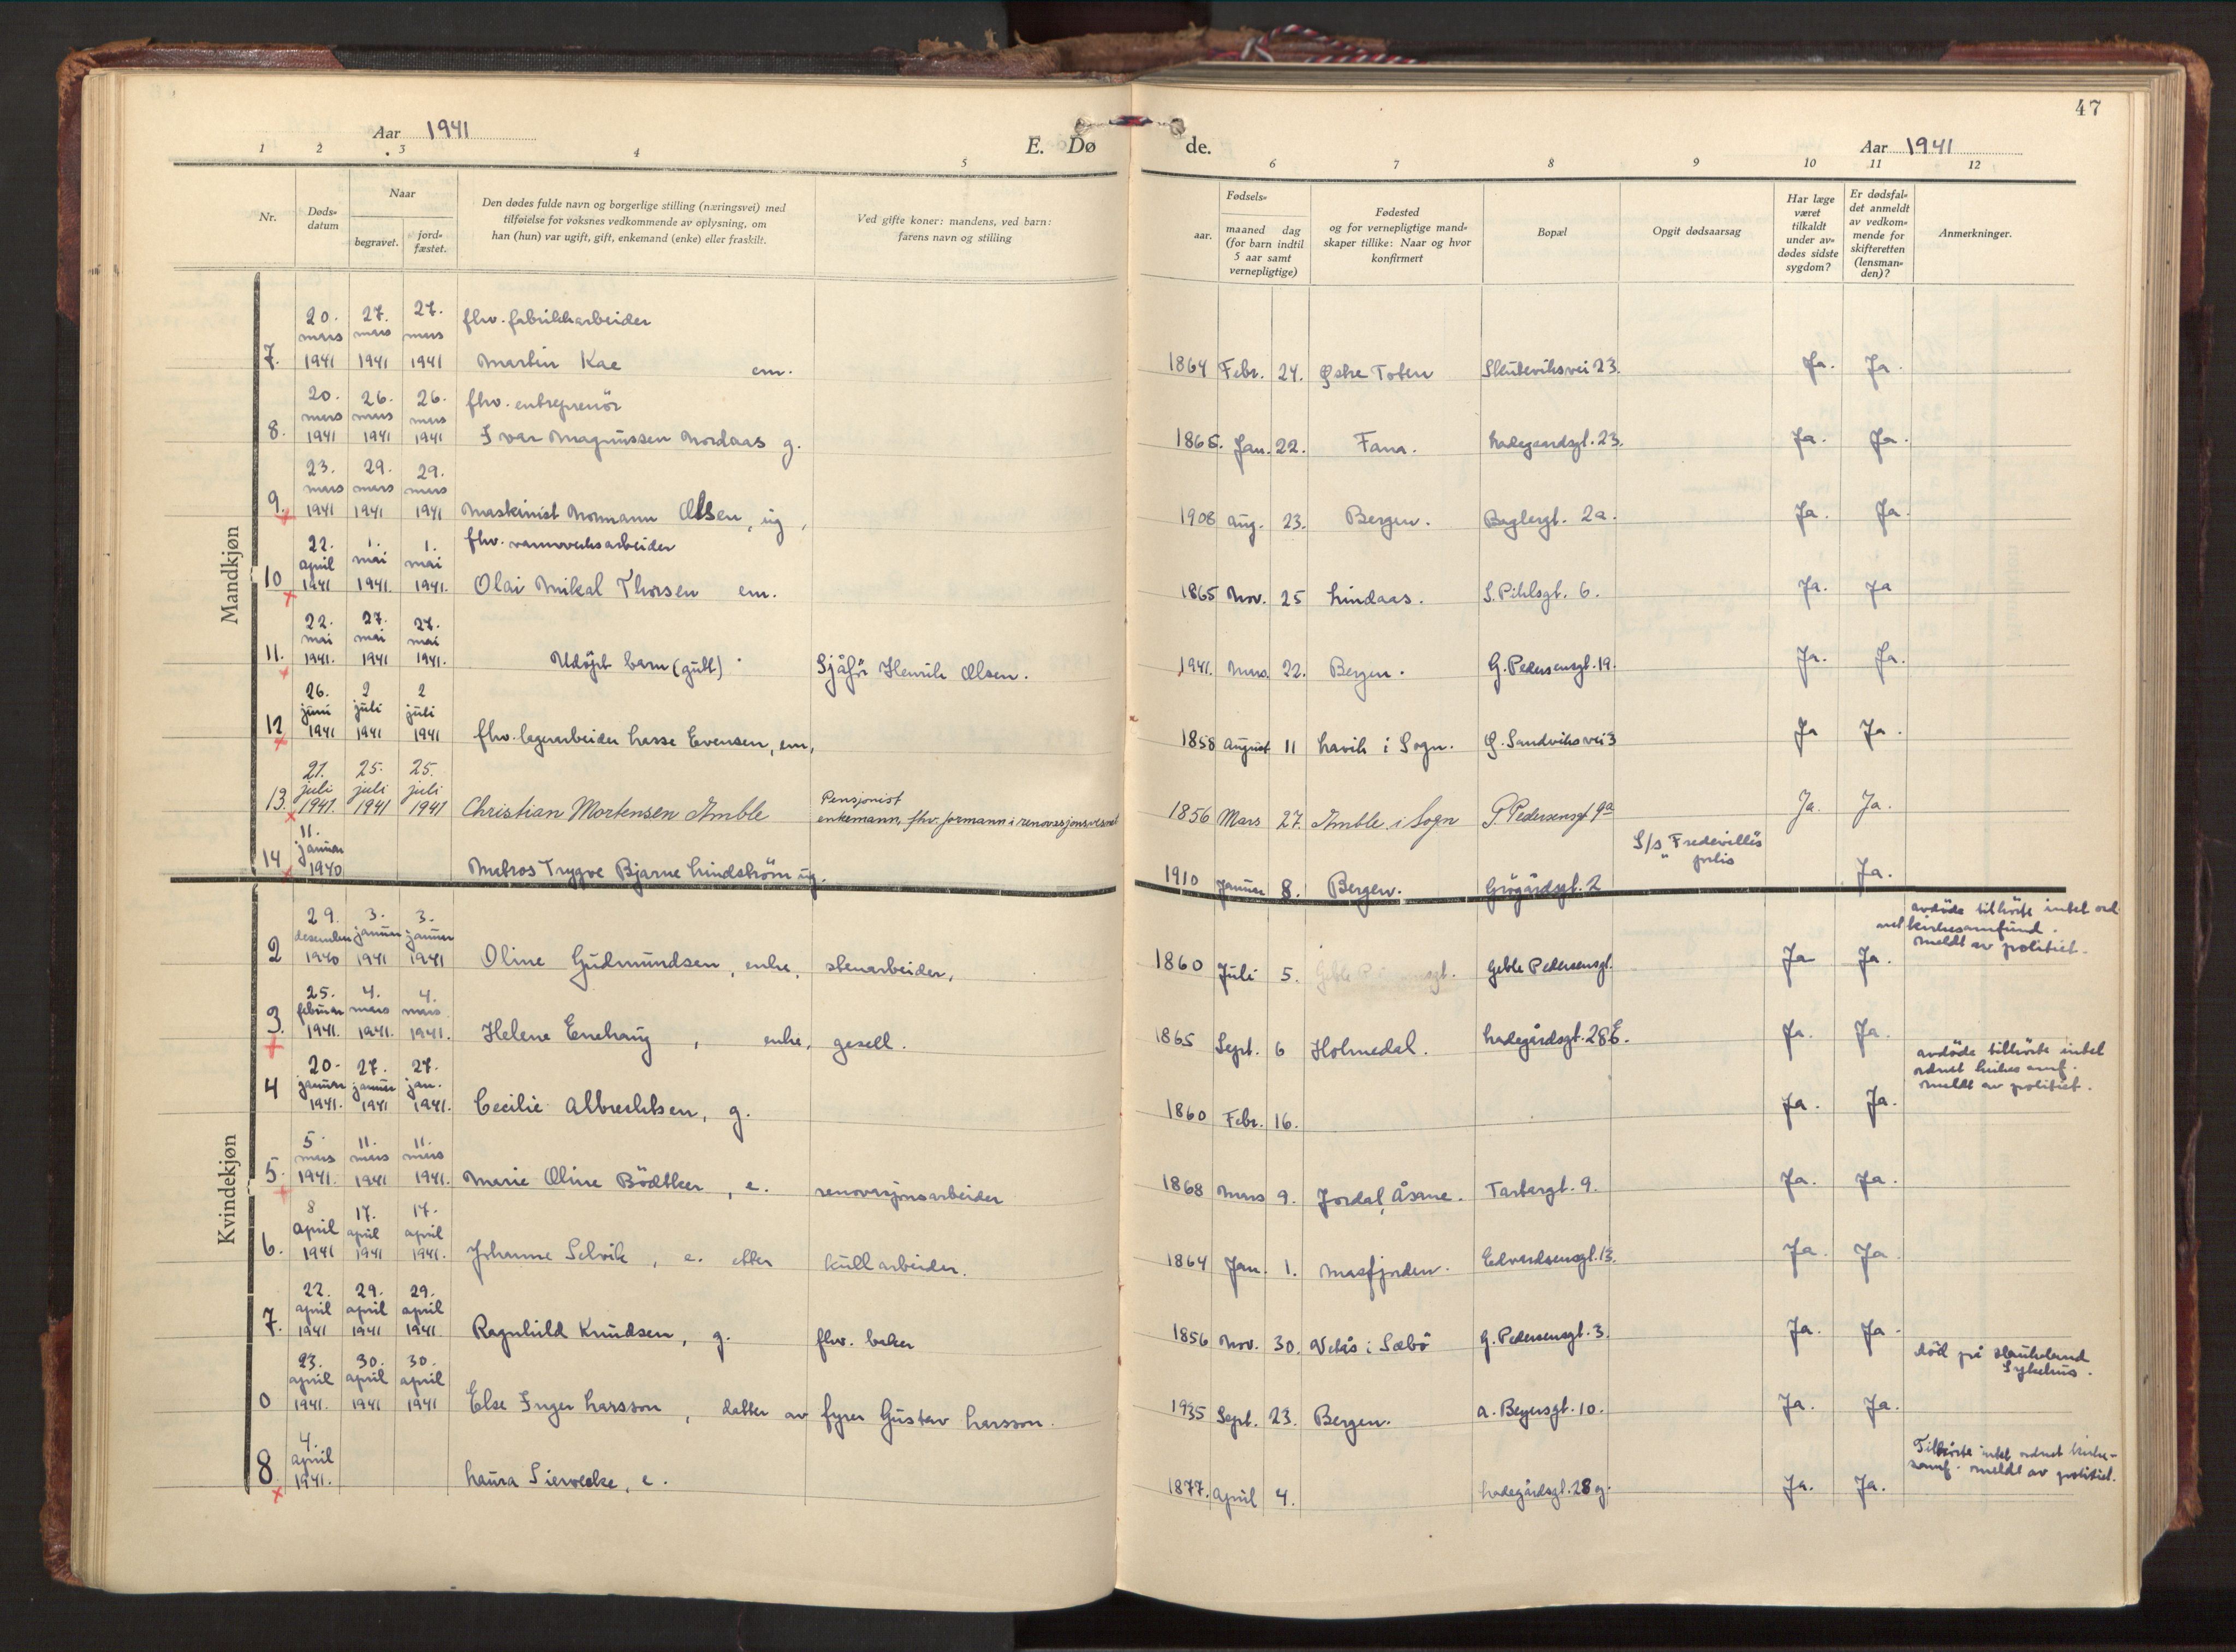 47
Aar 1941
E. Dø
de.
Aar 1941
1 2 3 4 5 6 7 8 9 10 11 12
Nr.
Døds-
datum
Naar
begravet.
jord-
fæstet.
Den dødes fulde navn og borgerlige stilling (næringsvei) med
tilføielse for voksnes vedkommende av oplysning, om
han (hun) var ugift, gift, enkemand (enke) eller fraskilt.
Ved gifte koner: mandens, ved barn:
farens navn og stilling
Fødsels-
aar.
maaned dag
(for barn indtil
5 aar samt
vernepligtige)
Fødested
og for vernepligtige mand-
skaper tillike: Naar og hvor
konfirmert
Bopæl
Opgit dødsaarsag
Har læge
været
tilkaldt
under av-
dødes sidste
sygdom?
Er dødsfal-
det anmeldt
av vedkom-
mende for
skifteretten
(lensman-
den)?
Anmerkninger.
Mandkjøn
20. 27. 27. fhv. fabrikkarbeider
mars mars mars
7. 1941 1941 1941 Martin Kae em. 1864 Febr. 24. Østre Toten Skuteviksvei 23. Ja. Ja.
20. 26. 26. fhv. entreprenör
mars mars mars
8. 1941 1941 1941 Ivar Magnussen Nordaas g. 1865. Jan. 22. Fana. Ladegaardsgt. 23. Ja. Ja.
23. 29. 29.
mars mars mars
9. 1941 1941 1941 Maskinist Normann Olsen, ug, 1908 Aug. 23. Bergen. Baglergt. 2a. Ja. Ja.
22. 1. 1. fhv. vannverksarbeider
april mai mai
10 1941 1941. 1941. Olai Mikal Thorsen em. 1865 Nov. 25 Lindaas. S. Pihlsgt. 6. Ja. Ja
22. 27. 27.
mai mai mai
11. 1941. 1941 1941. Udöpt barn (gutt) Sjåför Henrik Olsen. 1941. Mars. 22. Bergen. G. Pedersensgt. 19. Ja. Ja.
26. 2 2
juni juli juli
12 1941 1941 1941 fhv. lagerarbeider Lasse Evensen, em, 1858 August 11 Lavik i Sogn. Ø. Sandviksvei 3 Ja Ja.
21. 25. 25.
juli juli juli Pensjonist
13. 1941. 1941 1941 Christian Mortensen Amble enkemann, fhv. formann i renovasjonsvesenet 1856 Mars 27. Amble i Sogn G. Pedersensgt 9a Ja. Ja.
11.
januar S/s Fredevilles
14 1940 Matros Trygve Bjarne Lindström ug. 1910 Januar 8. Bergen. Grøgårdsgt. 2 " Ja.
Kvindekjøn
29. 3. 3. avdöde tilhörte intet ord
desember januar januar net kirkesamfund.
2 1940 1941 1941 Oline Gudmundsen, enke, stenarbeider, 1860 Juli 5. Geble Pedersensgt. Ja Ja. meldt av politiet.
25. 4. 4.
februar mars mars
3. 1941. 1941. 1941. Helene Enehaug, enke, gesell. 1865 Sept. 6 Holmedal. Ladegårdsgt. 28E. Ja. Ja.
20. 27. 27. avdöde tilhörte intet
januar januar jan. ordnet kirkesamf.
4 1941. 1941 1941. Cecilie Albrechtsen, g. 1860 Febr. 16. Ja. Ja. meldt av politiet.
5. 11. 11.
mars mars mars
5. 1941. 1941 1941. Marie Oline Bödtker, e. renovasjonsarbeider 1868 Mars 9. Jordal, Åsane. Tartargt. 9. Ja. Ja.
8 17. 17.
april april april
6. 1941 1941 1941. Johanne Selvik, e. etter kullarbeider. 1864 Jan. 1. Masfjorden. Edvardsensgt. 13. Ja. Ja
22. 29. 29.
april april april
7. 1941 1941 1941 Ragnhild Knudsen, g. fhv. baker 1856 Nov. 30. i Sæbö G. Pedersensgt. 3. Ja. Ja.
23. 30. 30. död på Haukeland
april april april Sykehus.
0 1941. 1941 1941 Else Inger Larsson, datter av fyrer Gustav Larsson. 1935 Sept. 23. Bergen. A. Beyersgt. 10. Ja. Ja.
4.
april Tilhörte intet ordnet kirke-
8 1941. Laura Sierwecke, e. 1877. April 4. Ladegårdsgt. 28 g. Ja. Ja. samf. meldt av politiet.